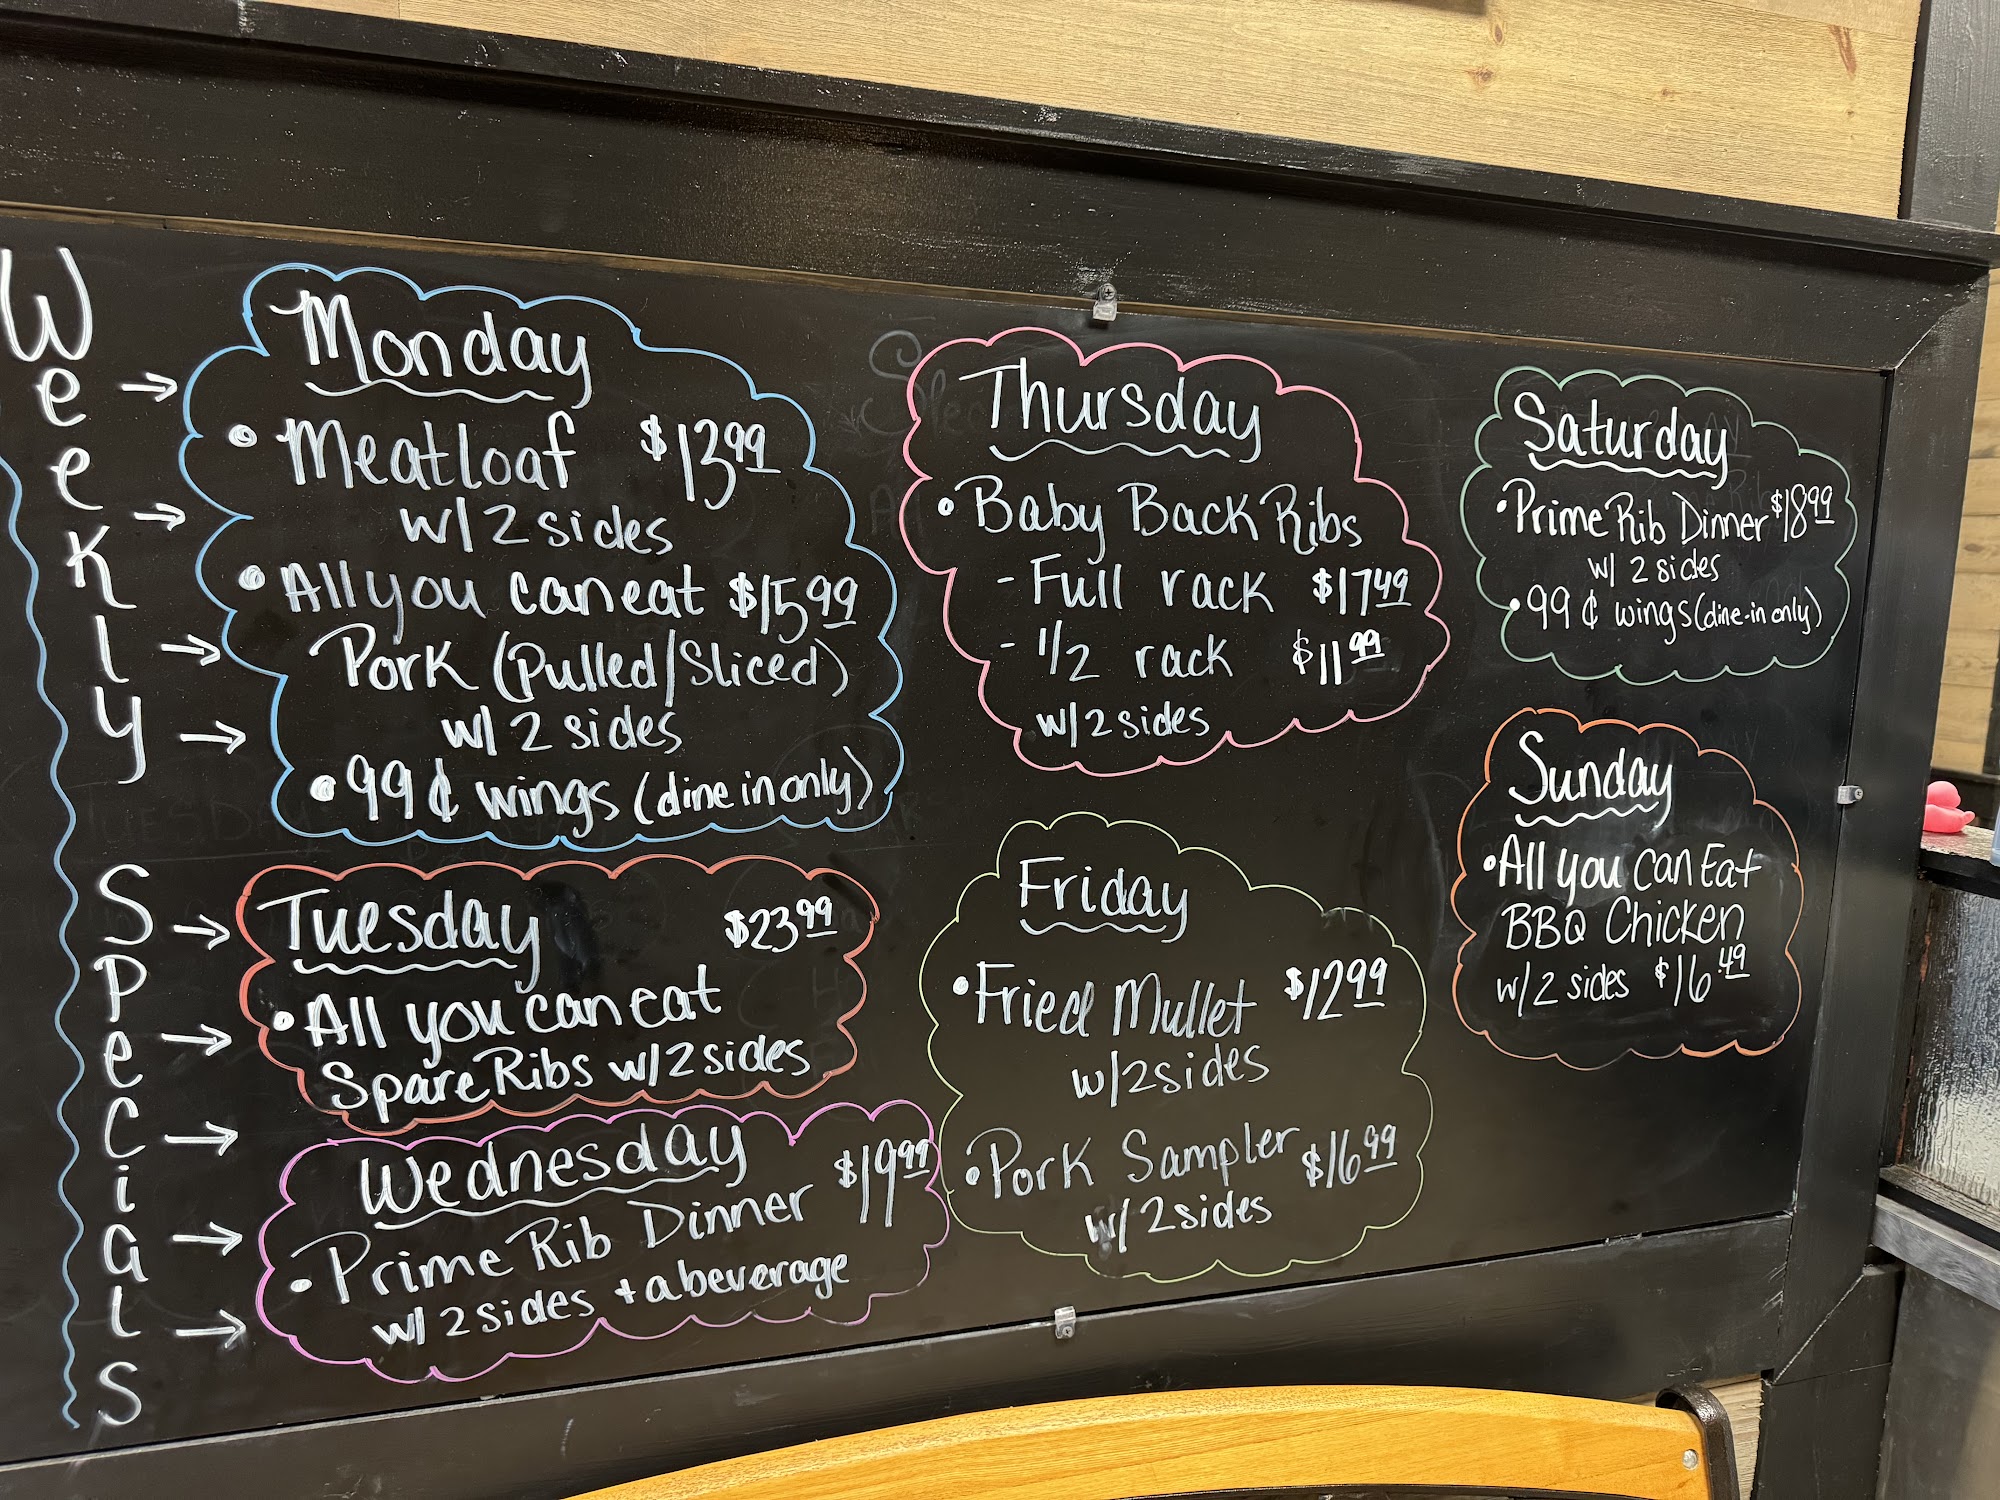 Weekly Specials
Monday
• Meatloaf $13.99
w/ 2 sides
• All you can eat $15.99
Pork (Pulled/Sliced)
w/ 2 sides
• 99¢ wings (dine in only)
Tuesday $23.99
• All you can eat
Spare Ribs w/ 2 sides
Wednesday
• Prime Rib Dinner $19.99
w/ 2 sides + a beverage
Thursday
• Baby Back Ribs
- Full rack $17.49
- 1/2 rack $11.99
w/ 2 sides
Friday
• Fried Mullet $12.99
w/ 2 sides
• Pork Sampler $16.99
w/ 2 sides
Saturday
• Prime Rib Dinner $18.99
w/ 2 sides
• 99¢ wings (dine-in only)
Sunday
• All you can Eat
BBQ Chicken
w/ 2 sides $16.49